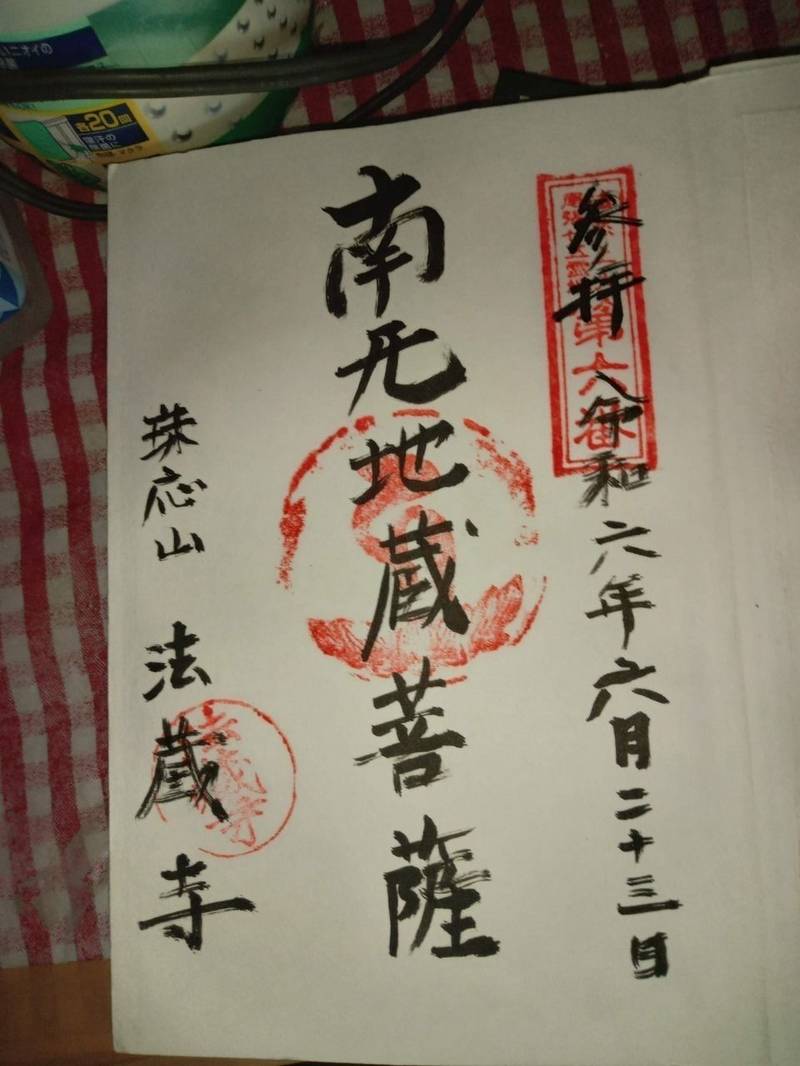 参拝 令和六年六月二十三日
第六番
南无地蔵菩薩
珠応山 法蔵寺
法蔵寺
各20回